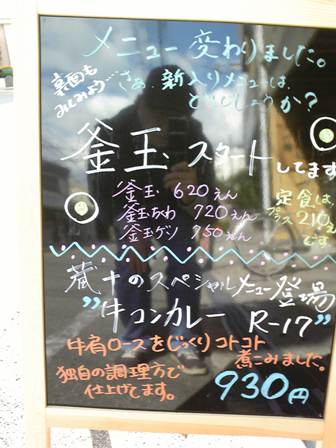 メニュー変わりました。
裏面も
みてみよう
さぁ、新入りメニューは、
どれでしょうか?
釜玉 スタート
してます
釜玉 620えん
釜玉ちくわ 720えん
釜玉ゲソ 750えん
定食は、
プラス210え
です
蔵十のスペシャルメニュー登場
"牛コンカレー R-17"
牛肩ロースをじっくりコトコト
煮こみました。
独自の調理方で
仕上げてます。
930円